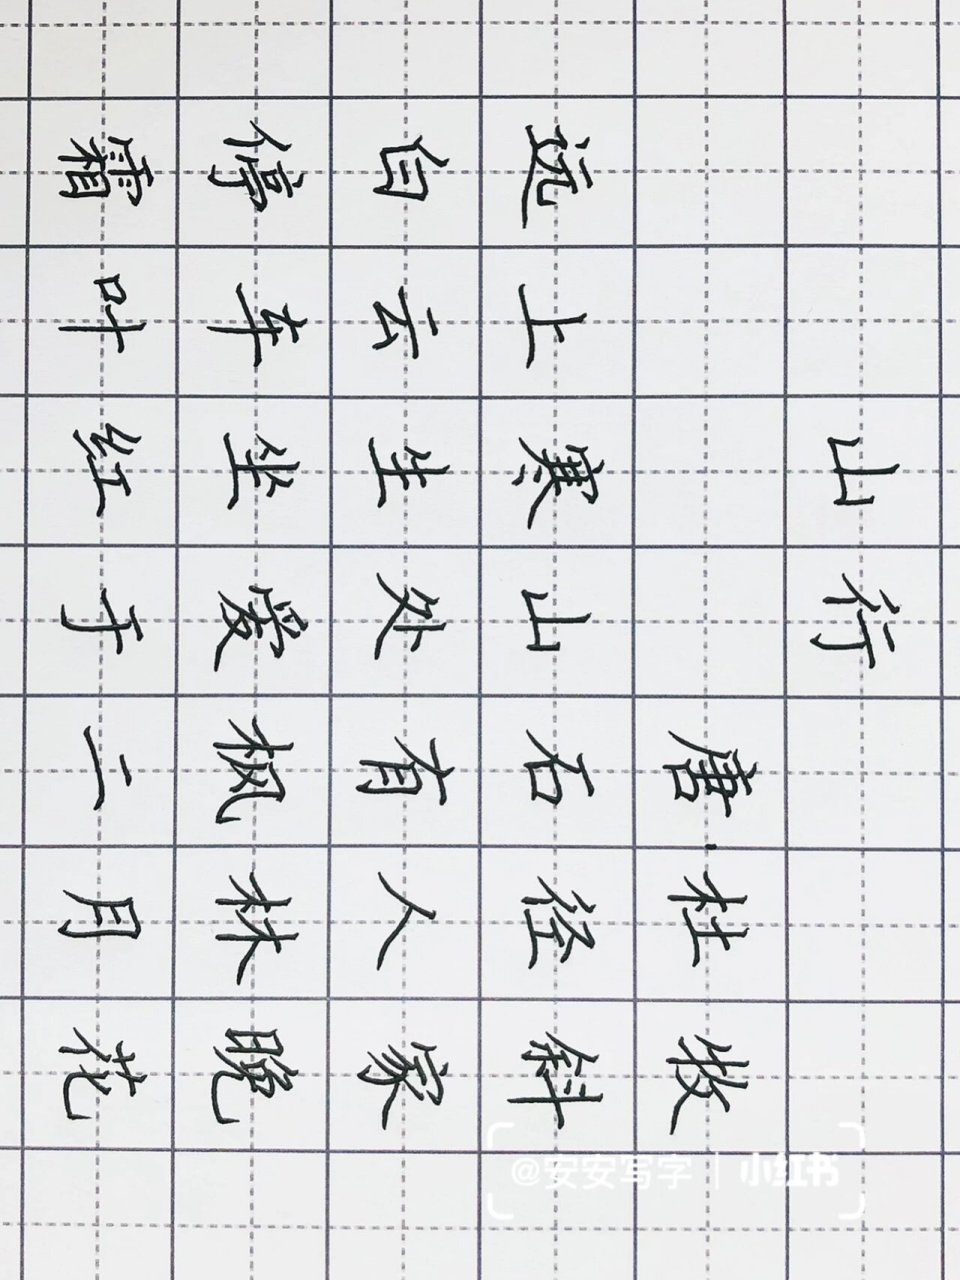 山行
唐·杜牧
远上寒山石径斜
白云生处有人家
停车坐爱枫林晚
霜叶红于二月花
@安安写字 | 小红书